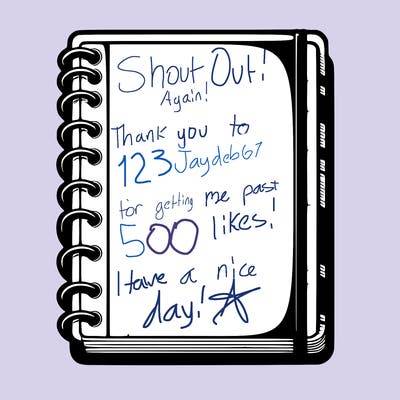 Shout Out!
Again!
Thank you to
123Jaydeb67
for getting me past
500 likes!
Have a nice
day!